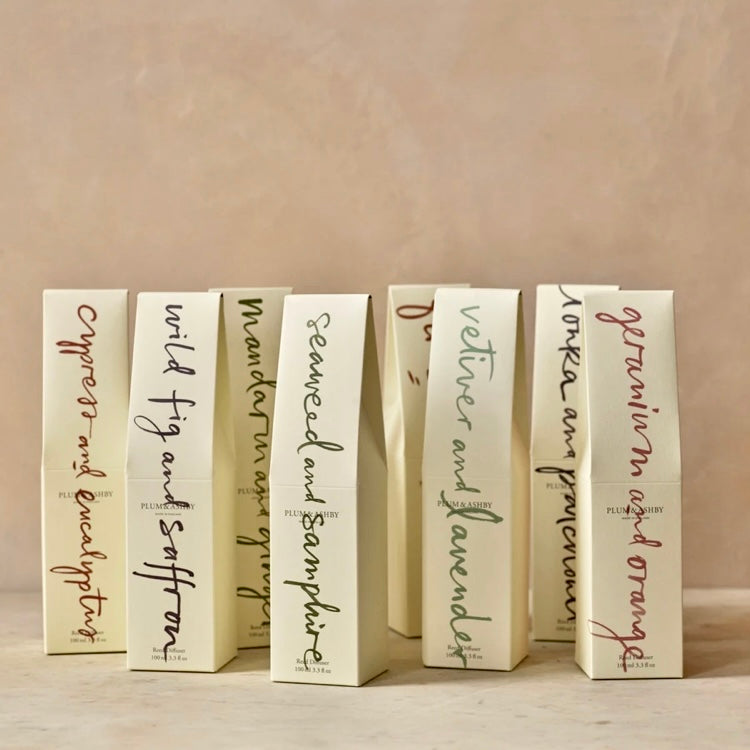 cypress and eucalyptus
PLUM & ASHBY
Reed Diffuser
100 ml 3.3 fl oz
wild fig and saffron
PLUM & ASHBY
Reed Diffuser
100 ml 3.3 fl oz
mandarin and ginger
seaweed and samphire
PLUM & ASHBY
Reed Diffuser
100 ml 3.3 fl oz
vetiver and lavender
PLUM & ASHBY
Reed Diffuser
100 ml 3.3 fl oz
tonka and patchouli
geranium and orange
PLUM & ASHBY
Reed Diffuser
100 ml 3.3 fl oz